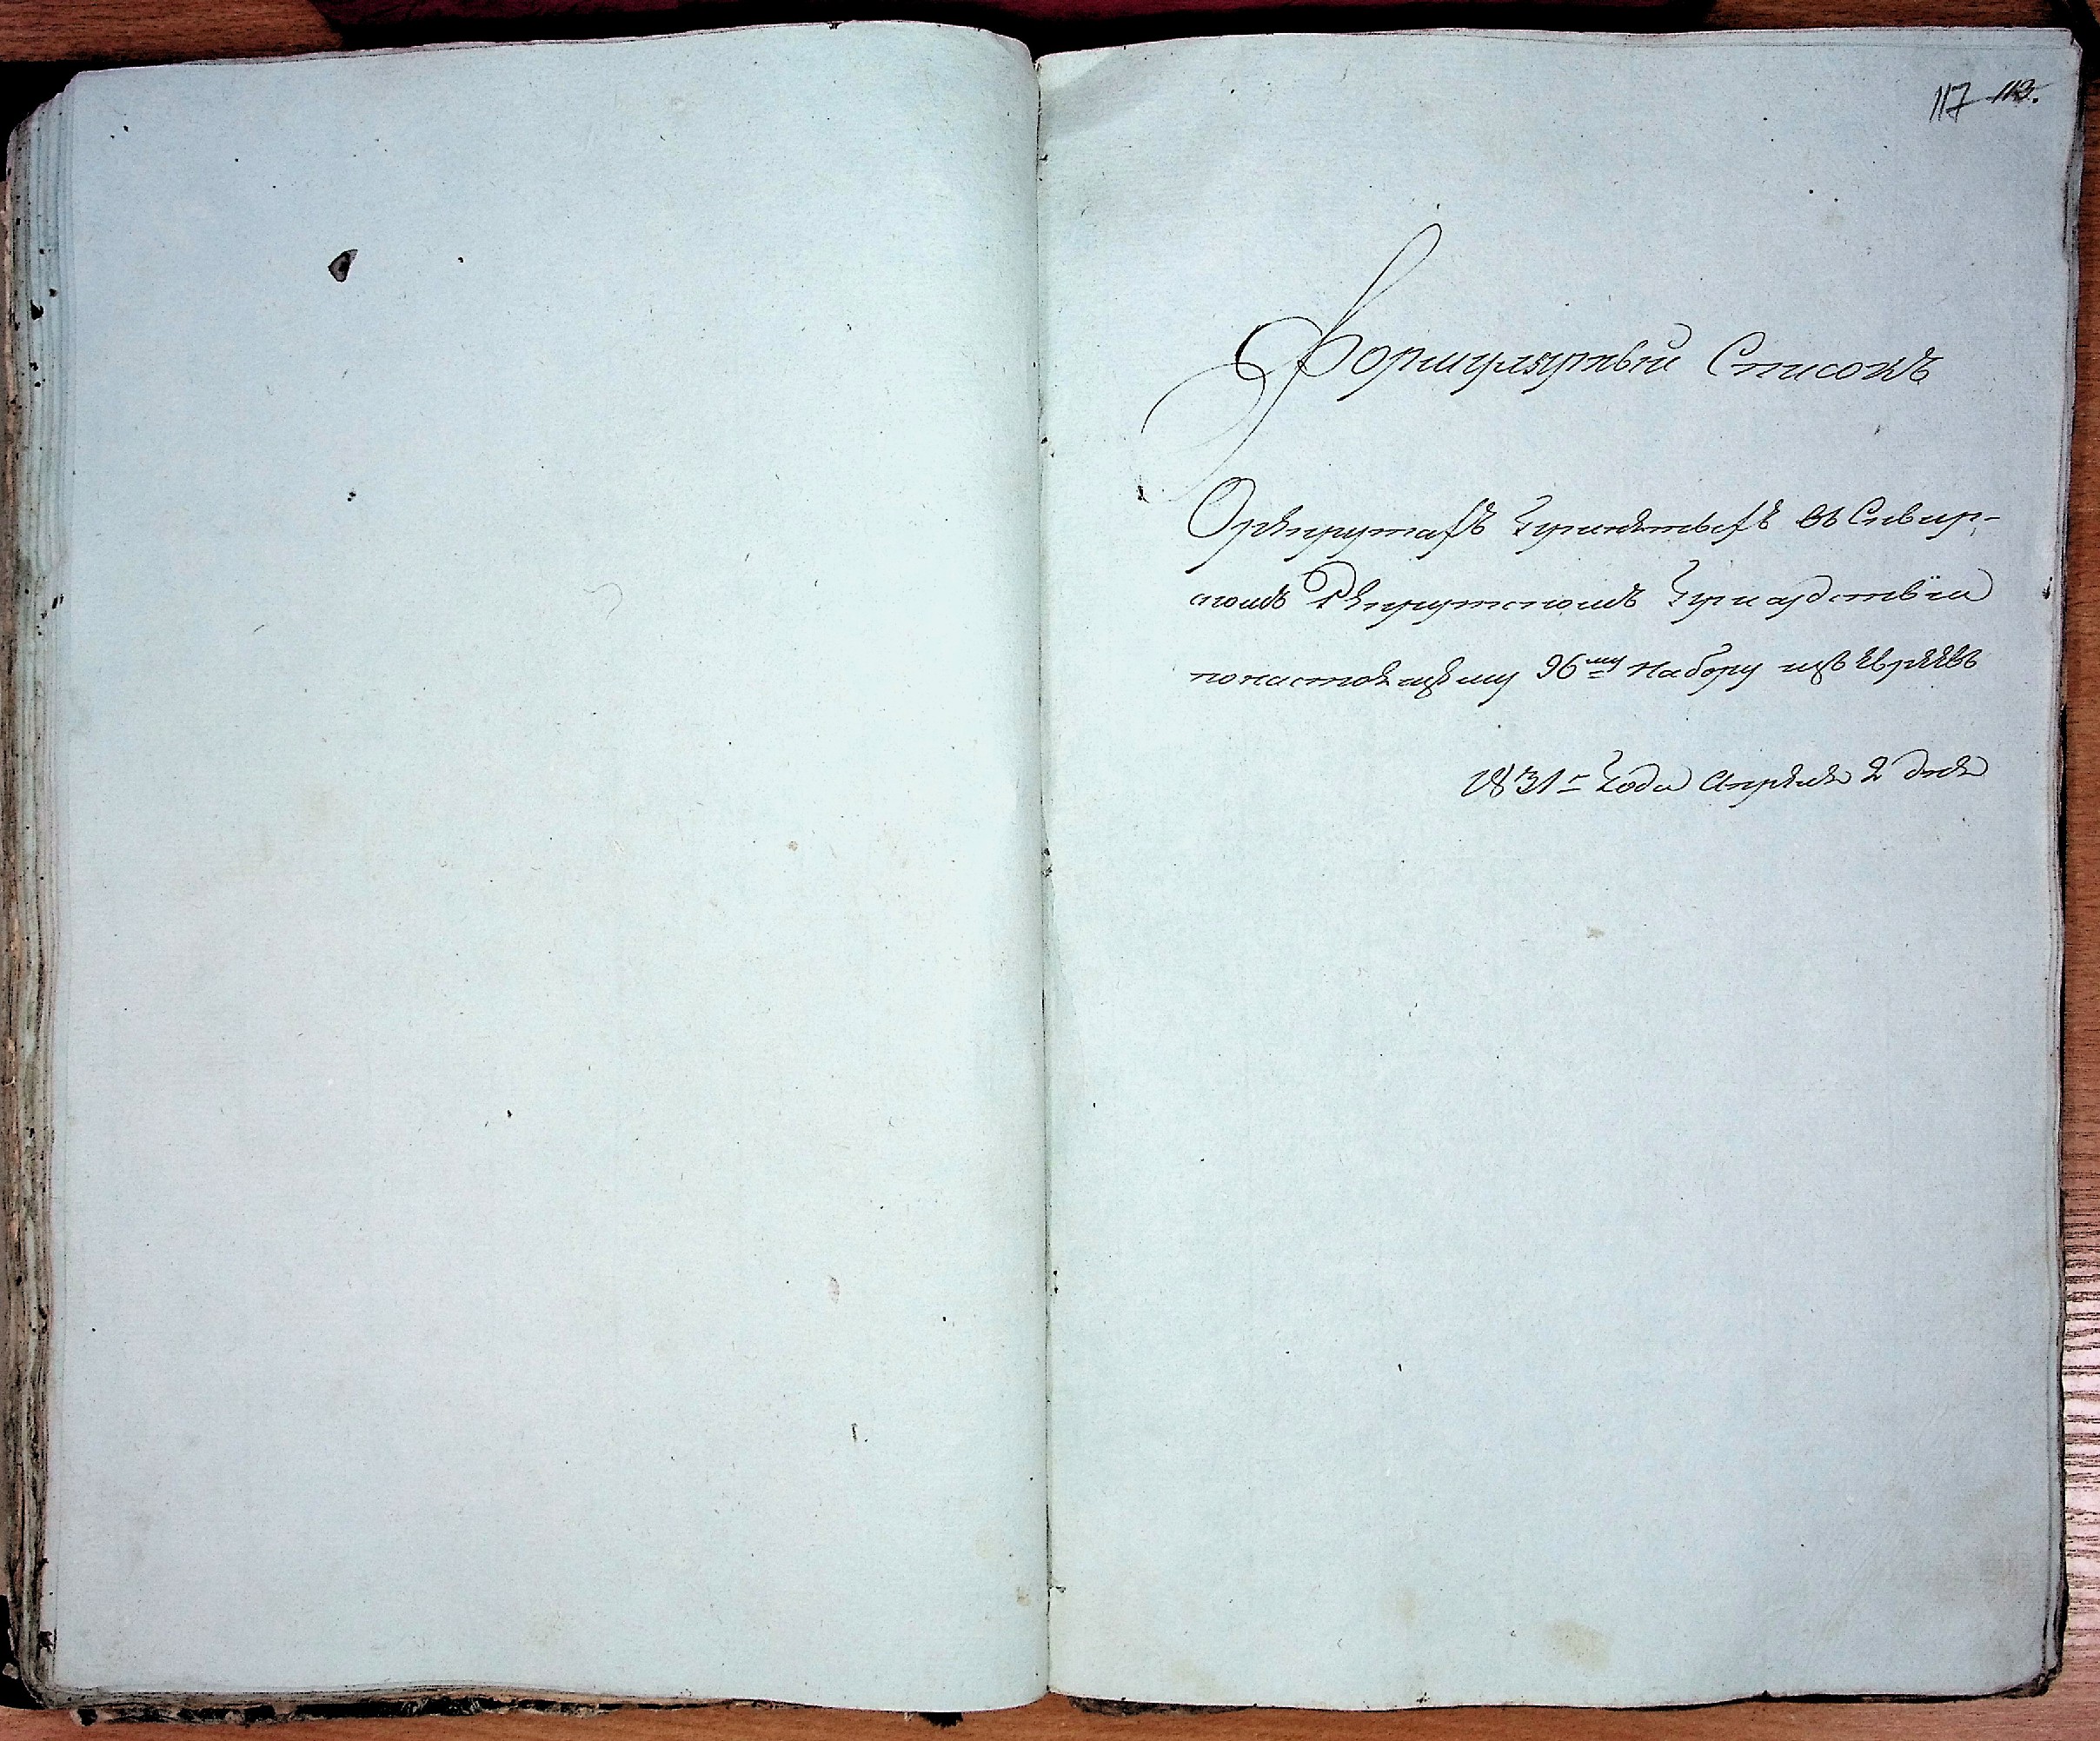 117 113.
Формулярный Списокъ
О рекрутахъ принятыхъ въ Сквир-
скомъ Рекрутскомъ присудствіи
по настоящему 96му набору изъ евреевъ
1831г года Апреля 2 дня